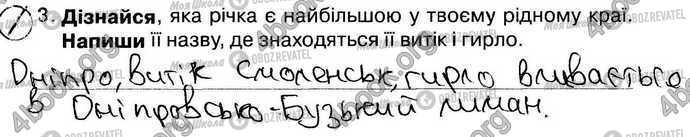 3. Дізнайся, яка річка є найбільшою у твоєму рідному краї.
Напиши її назву, де знаходяться її витік і гирло.
Дніпро, витік Смоленськ, гирло вливається
в Дніпровсько-Бузький лиман.